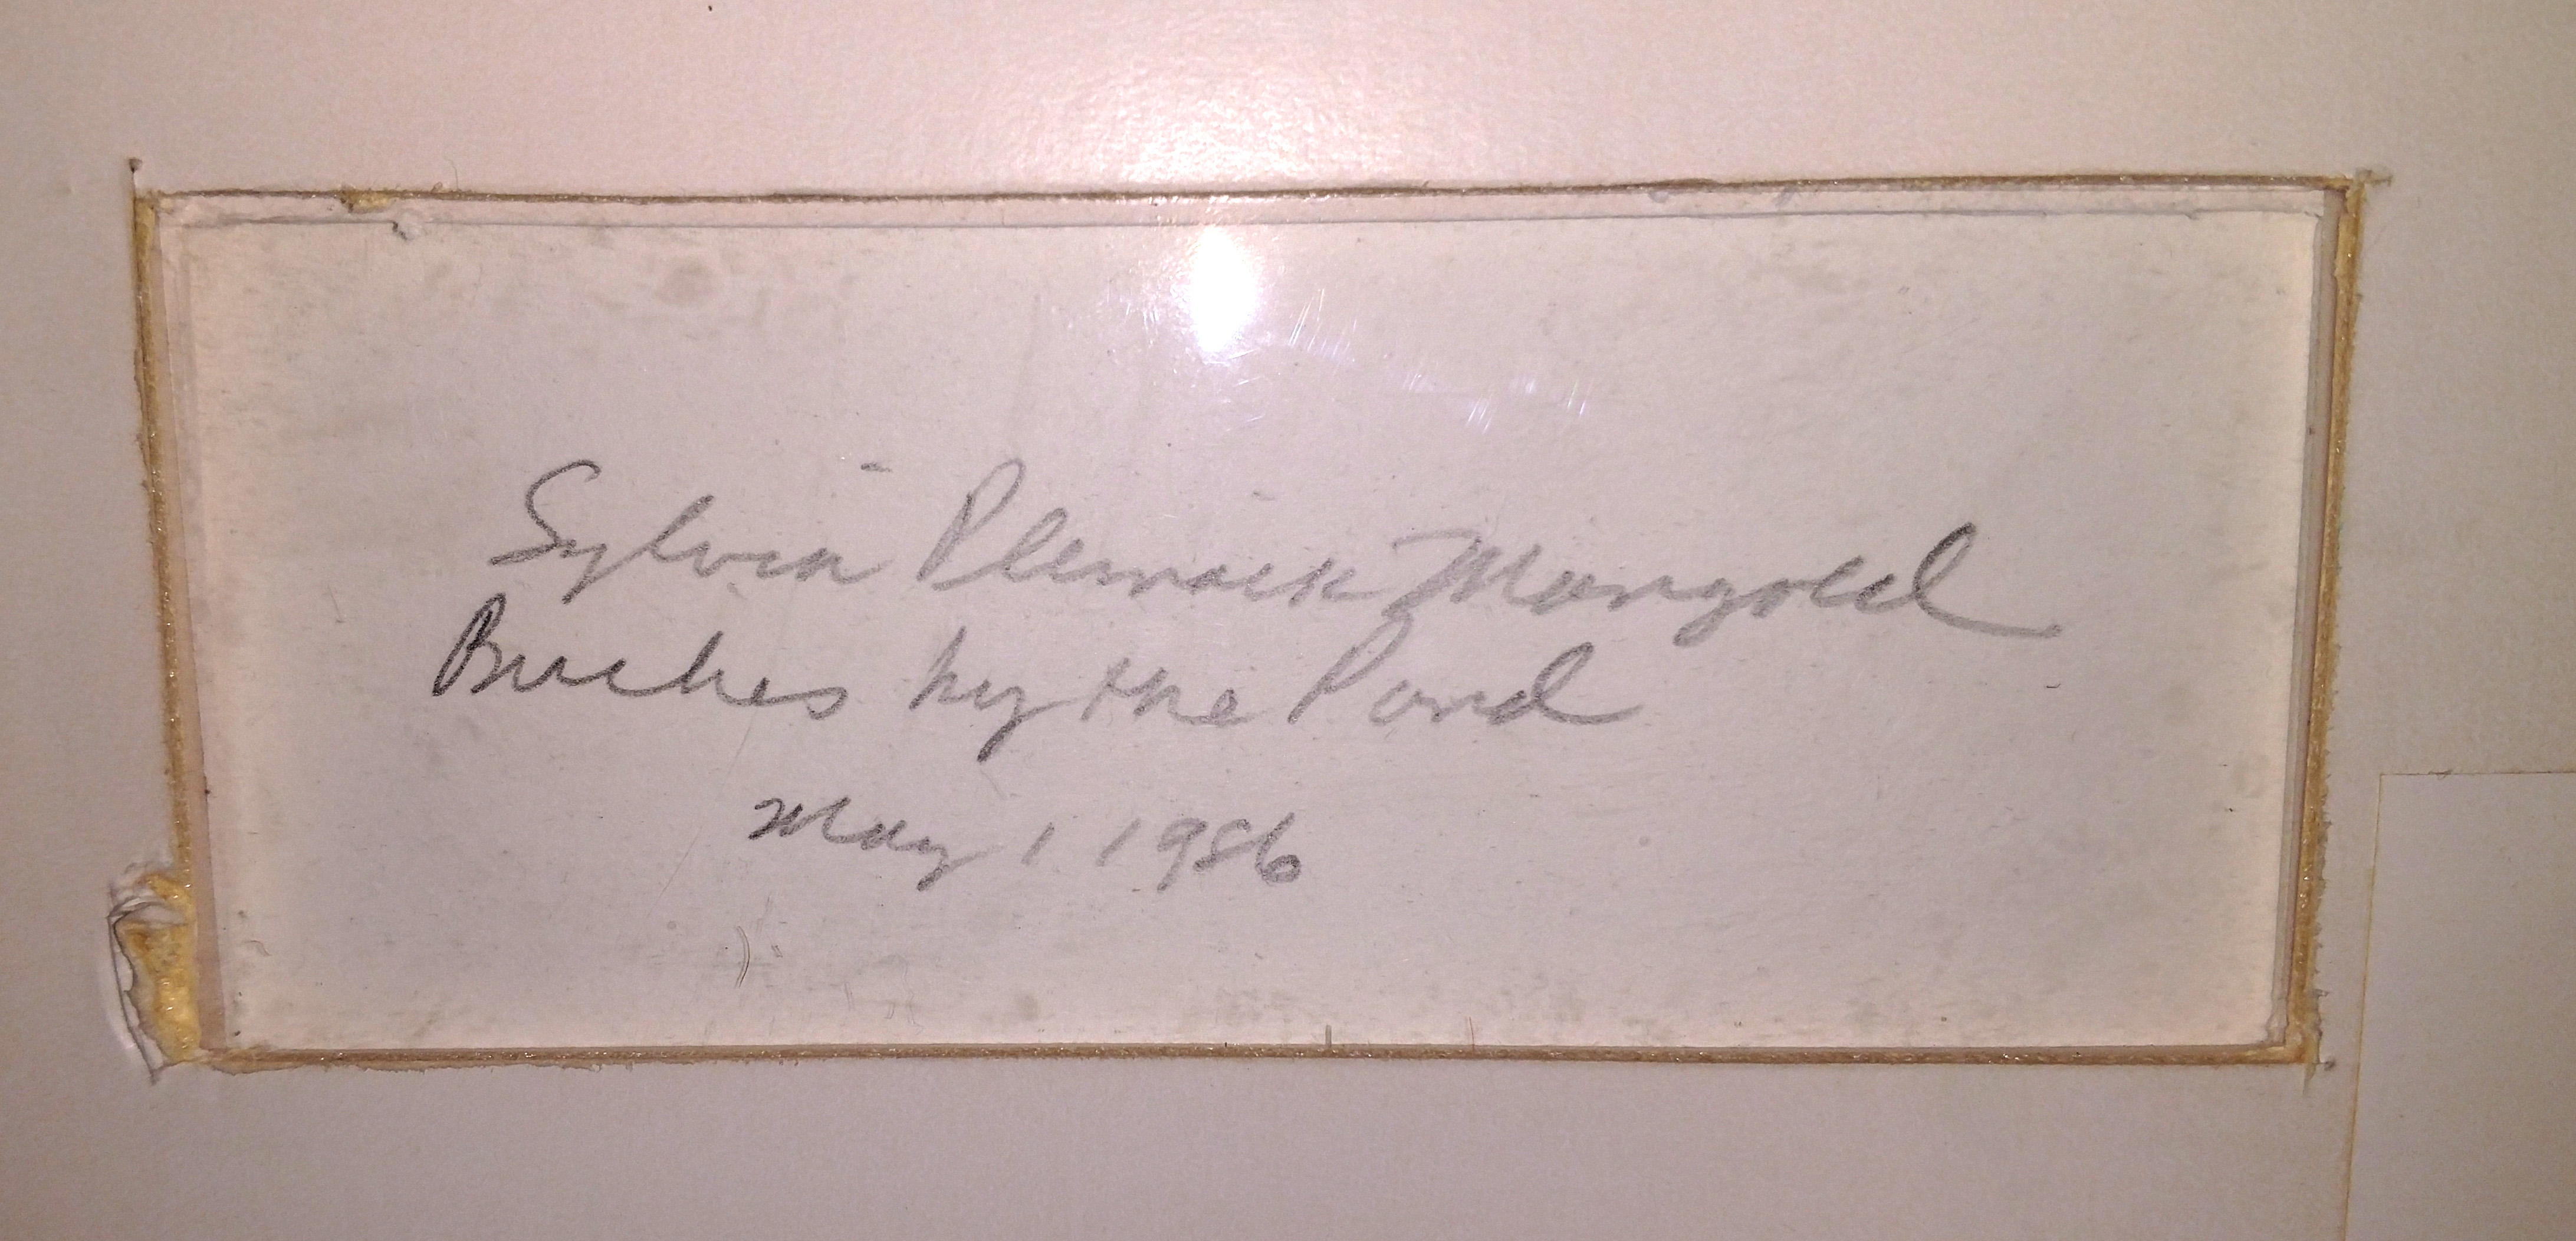 Sylvia Plimack Mangold
Birches by the Pond
May 1 1986